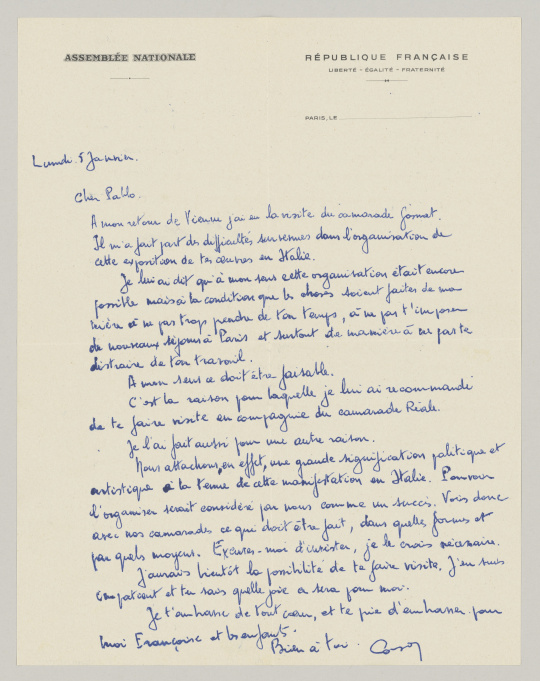 ASSEMBLÉE NATIONALE
RÉPUBLIQUE FRANÇAISE
LIBERTÉ - ÉGALITÉ - FRATERNITÉ
PARIS, LE
Lundi 5 Janvier.
Cher Pablo.
A mon retour de Vienne j'ai eu la visite du camarade
Il m'a fait part des difficultés survenues dans l'organisation de
cette exposition de tes œuvres en Italie.
Je lui ai dit qu'à mon sens cette organisation était encore
possible mais à la condition que les choses soient faites de ma
nière à ne pas trop prendre de ton temps, à ne pas t'imposer
de nouveaux séjours à Paris et surtout de manière à ne pas te
distraire de ton travail.
A mon sens ce doit être faisable.
C'est la raison pour laquelle je lui ai recommandé
de te faire visite en compagnie du camarade Reale.
Je l'ai fait aussi pour une autre raison.
Nous attachons, en effet, une grande signification politique et
artistique à la tenue de cette manifestation en Italie. Pouvoir
l'organiser serait considéré par nous comme un succès. Vois donc
avec nos camarades ce qui doit être fait, dans quelles formes et
par quels moyens. Excuses-moi d'insister, je le crois nécessaire.
J'aurais bientôt la possibilité de te faire visite. J'en suis
impatient et tu sais quelle joie ce sera pour moi.
Je t'embrasse de tout cœur, et te prie d'embrasser pour
moi Françoise et les enfants.
Bien à toi.